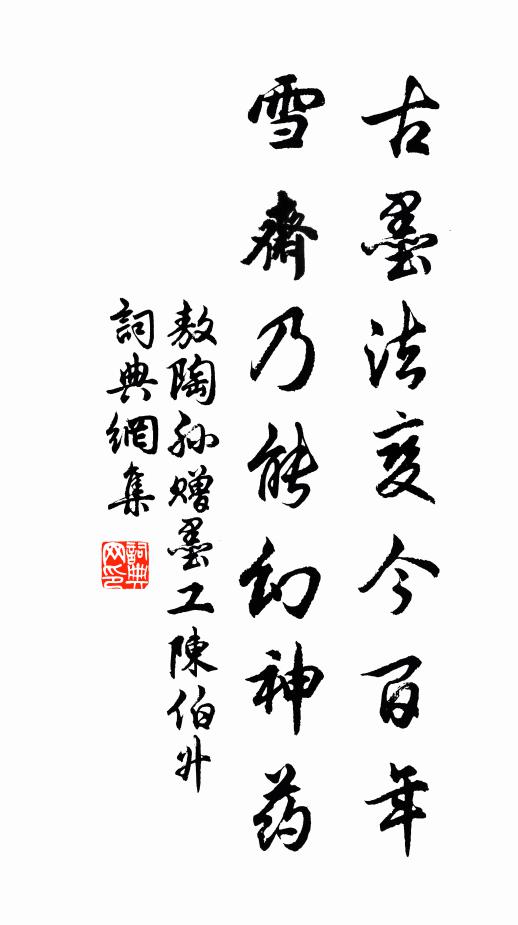 古墨法变今百年
雪斋乃能幻神药
敖陶孙赠墨工陈伯升
词典網集
詞典網印